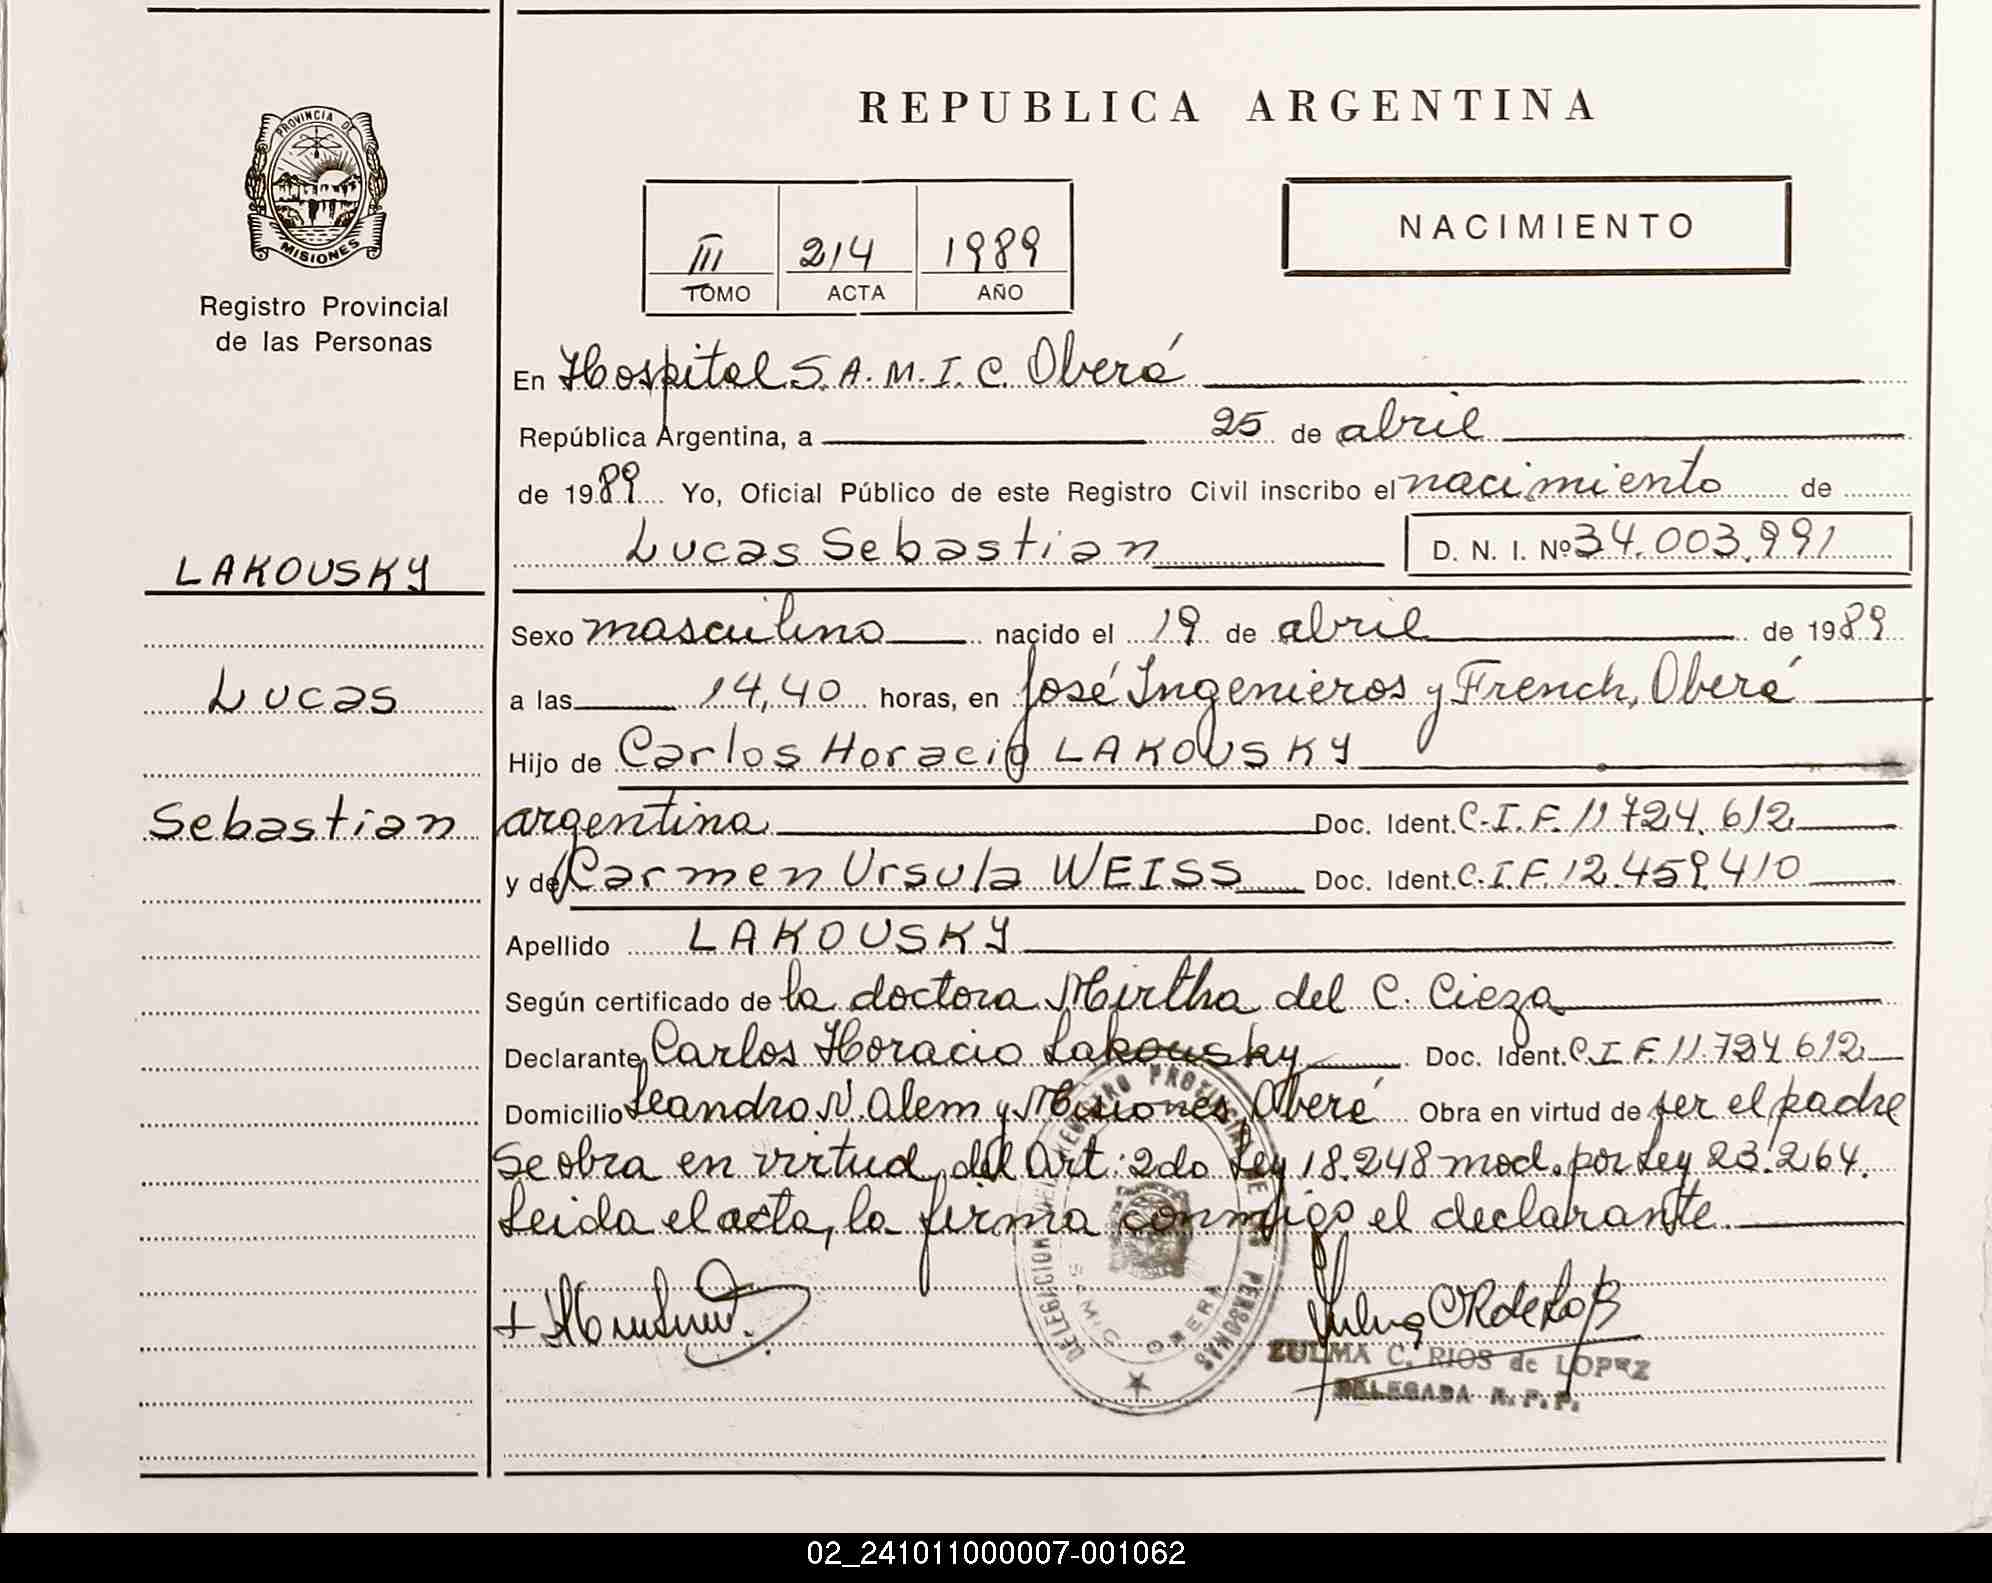 REPUBLICA ARGENTINA
PROVINCIA DE
MISIONES
Registro Provincial
de las Personas
NACIMIENTO
III 214 1989
TOMO ACTA AÑO
En Hospital S.A.M.I.C. Oberá
República Argentina, a 25 de abril
de 1989 Yo, Oficial Público de este Registro Civil inscribo el nacimiento de
Lucas Sebastian D. N. I. Nº 34.003.991
LAKOUSKY
Lucas
Sebastian
Sexo masculino nacido el 19 de abril de 1989
a las 14,40 horas, en José Ingenieros y French, Oberá
Hijo de Carlos Horacio LAKOUSKY
argentina Doc. Ident. C.I.F. 11.724.612
y de Carmen Ursula WEISS Doc. Ident. C.I.F. 12.459.410
Apellido LAKOUSKY
Según certificado de la doctora Mirtha del C. Cieza
Declarante Carlos Horacio Lakousky Doc. Ident. C.I.F. 11.724.612
Domicilio Leandro N. Alem y Misiones, Oberá Obra en virtud de ser el padre
Se obra en virtud del Art: 2do Ley 18.248 mod. por Ley 23.264.
Leida el acta, la firma conmigo el declarante
DELEGACION DEL REGISTRO PROVINCIAL DE LAS PERSONAS
SAMIC OBERA
ZULMA C. RIOS de LOPEZ
DELEGADA R. P. P.
02_241011000007-001062